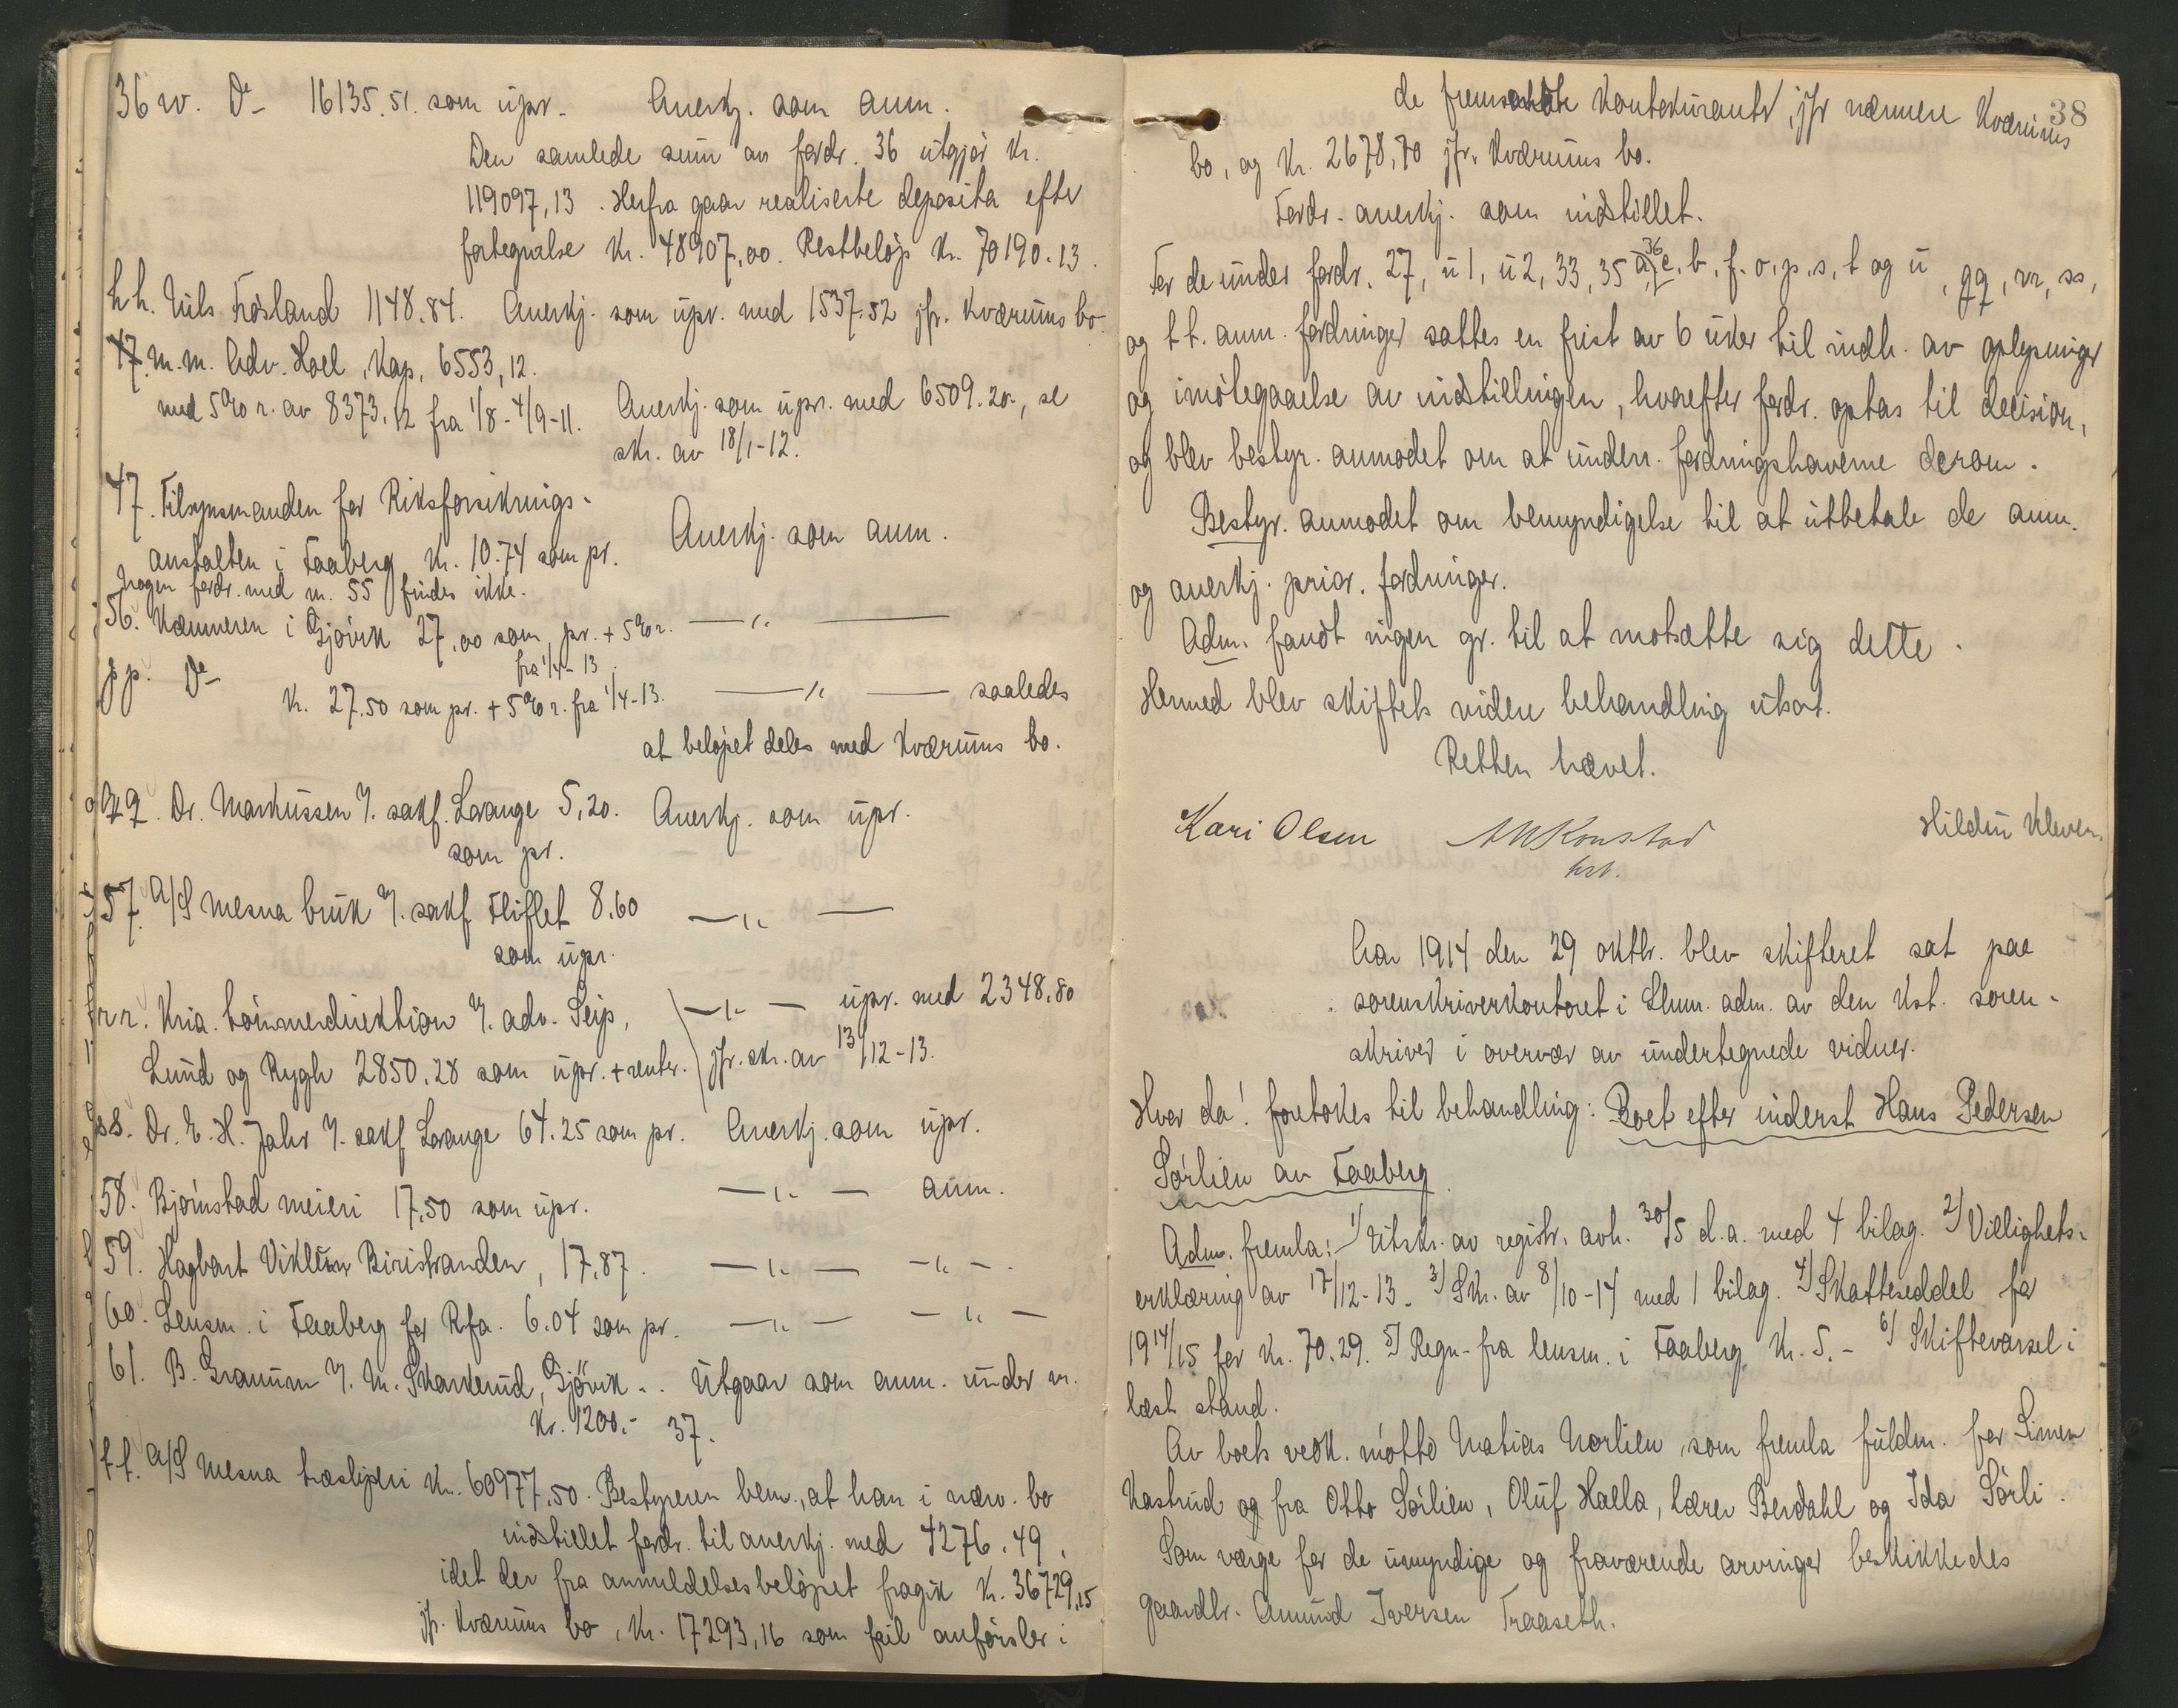 36 w. Do 16135.51. som upr. Anerkj. som anm.
Den samlede sum av fordr. 36 utgjør kr.
119097,13. Herfra gaar realiserte deposita efter
fortegnelse kr. 48907,00. Restbeløp kr. 70190.13.
hh. Nils Frøsland 1148.84. Anerkj. som upr. med 1537.52 jfr. Kværums bo.
47. m.m. Adv. Hoel, Kap. 6553,12.
med 5% r. av 8373.12 fra 1/8-4/9-11. Anerkj. som upr. med 6509.20, se
skr. av 18/1-12.
47. Tilsynsmanden for Riksforsikrings-
anstalten i Faaberg kr. 10.74 som pr. Anerkj. som anm.
Nogen fordr. med nr. 55 findes ikke.
56. Kæmneren i Gjøvik 27,00 som pr. + 5% r. —"—
fra 1/4-13.
pp. Do kr. 27.50 som pr. + 5% r. fra 1/4-13. —"— saaledes
at beløpet deles med Kværums bo.
qq. Dr. Markussen v. sakf. Lorange 5,20. Anerkj. som upr.
som pr.
57. A/S Mesna bruk v. sakf. Fliflet 8.60 —"—
som upr.
rr. Kria. tømmerdirektion v. adv. Seip, —"— upr. med 2348.80
Lund og Rygh 2850.28 som upr. + renter. jfr. skr. av 13/12-13.
ss. Dr. E. H. Jahr v. sakf. Lorange 64.25 som pr. Anerkj. som upr.
58. Bjørnstad meieri 17,50 som upr. —"— anm.
59. HagbartViklem Biristranden, 17.87. —"— —"—.
60. Lensm. i Faaberg for Rfa. 6.04 som pr. —"— —"—
61. B. Granum v. M. Skarkerud, Gjøvik.. Utgaar som anm. under nr.
kr. 1200.- 37.
tt. A/S Mesna træsliperi kr. 60977,50. Bestyreren bem., at han i nærv. bo
indstillet fordr. til anerkj. med 4276.49,
idet der fra anmeldelsesbeløpet fragik kr. 36729,15
jfr. Kværums bo, kr. 17293,16 som feil anførsler i
38
de fremsendte kontokuranter, jfr nærmere Kværums
bo, og kr. 2678,70 jfr. Kværums bo.
Fordr. anerkj. som indstillet.
For de under fordr. 27, u1, u2, 33, 35 36 b. f. o. p. s. t og u, qq, rr, ss,
og tt. anm. fordringer sattes en frist av 6 uker til indh. av oplysninger
og imøtegaaelse av indstillingen, hvorefter fordr. optas til decision,
og blev bestyr. anmodet om at underr. fordringshaverne derom.
Bestyr. anmodet om bemyndigelse til at utbetale de anm.
og anerkj. prior. fordringer.
Adm. fandt ingen gr. til at motsætte sig dette.
Hermed blev skiftets videre behandling utsat.
Retten hævet.
Kari Olsen Konstad
kst.
Aar 1914 den 29 oktbr. blev skifteret sat paa
sorenskriverkontoret i Lhm. adm. av den kst. soren-
skriver i overvær av undertegnede vidner.
Hvor da! foretokes til behandling: Boet efter inderst Hans Pedersen
Sørlien av Faaberg
Adm. fremla: 1) Utskr. av registr. avh. 30/5 d.a. med 4 bilag. 2) Villighets-
erklæring av 17/12-13. 3) Skr. av 8/10-14 med 1 bilag. 4) Skatteseddel for
1914/15 for kr. 70.29. 5) Regn. fra lensm. i Faaberg kr. 5.- 6) Skiftevarsel i
læst stand.
Av boets vedk. møtte Matias Norlien, som fremla fuldm. for Simen
Kastrud og fra Otto Sørlien, Oluf Haella, lærer Berdahl og Ida Sørli.
Som værge for de umyndige og fraværende arvinger beskikkedes
gaardbr. Amund Iversen Traaseth.